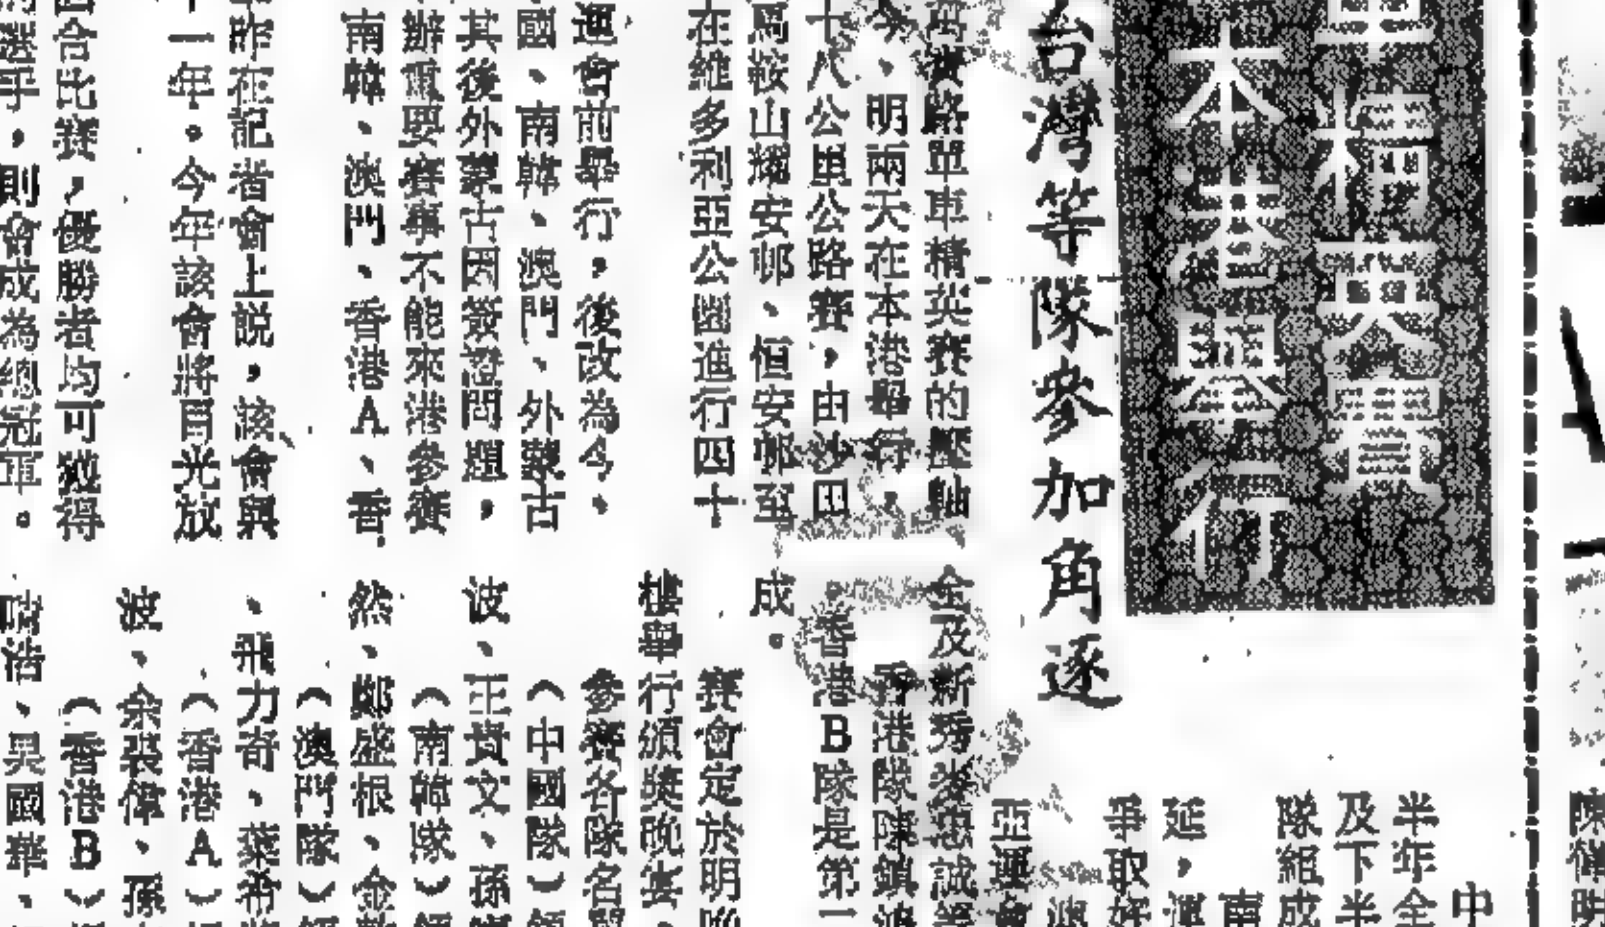 車精英賽
本港舉行
台灣等隊參加角逐
路單車精英賽的壓軸
、明兩天在本港舉行,
十八公里公路賽,由沙田
馬鞍山耀安邨、恒安邨至
在維多利亞公園進行四十
運會前舉行,後改為今、
國、南韓、澳門、外蒙古
其後外蒙古因簽證問題,
辦重要賽事不能來港參賽
南韓、澳門、香港A、香
昨在記者會上説,該會與
十一年。今年該會將目光放
合比賽,優勝者均可獲得
選手,則會成為總冠軍。
中
半年全
及下半
隊組成
南
延,運
爭取好
澳
亞運會
金及新秀
香港隊陳鎮
。香港B隊是第一
成。
賽會定於明晚
樓舉行頒獎晚宴。
參賽各隊名單
(中國隊)領
波、王貴文、孫
(南韓隊)領
然、鄭盛根、金
(澳門隊)領
、飛力奇、葉
(香港A)
波、余裴偉、孫
(香港B)
浩、吳國華、